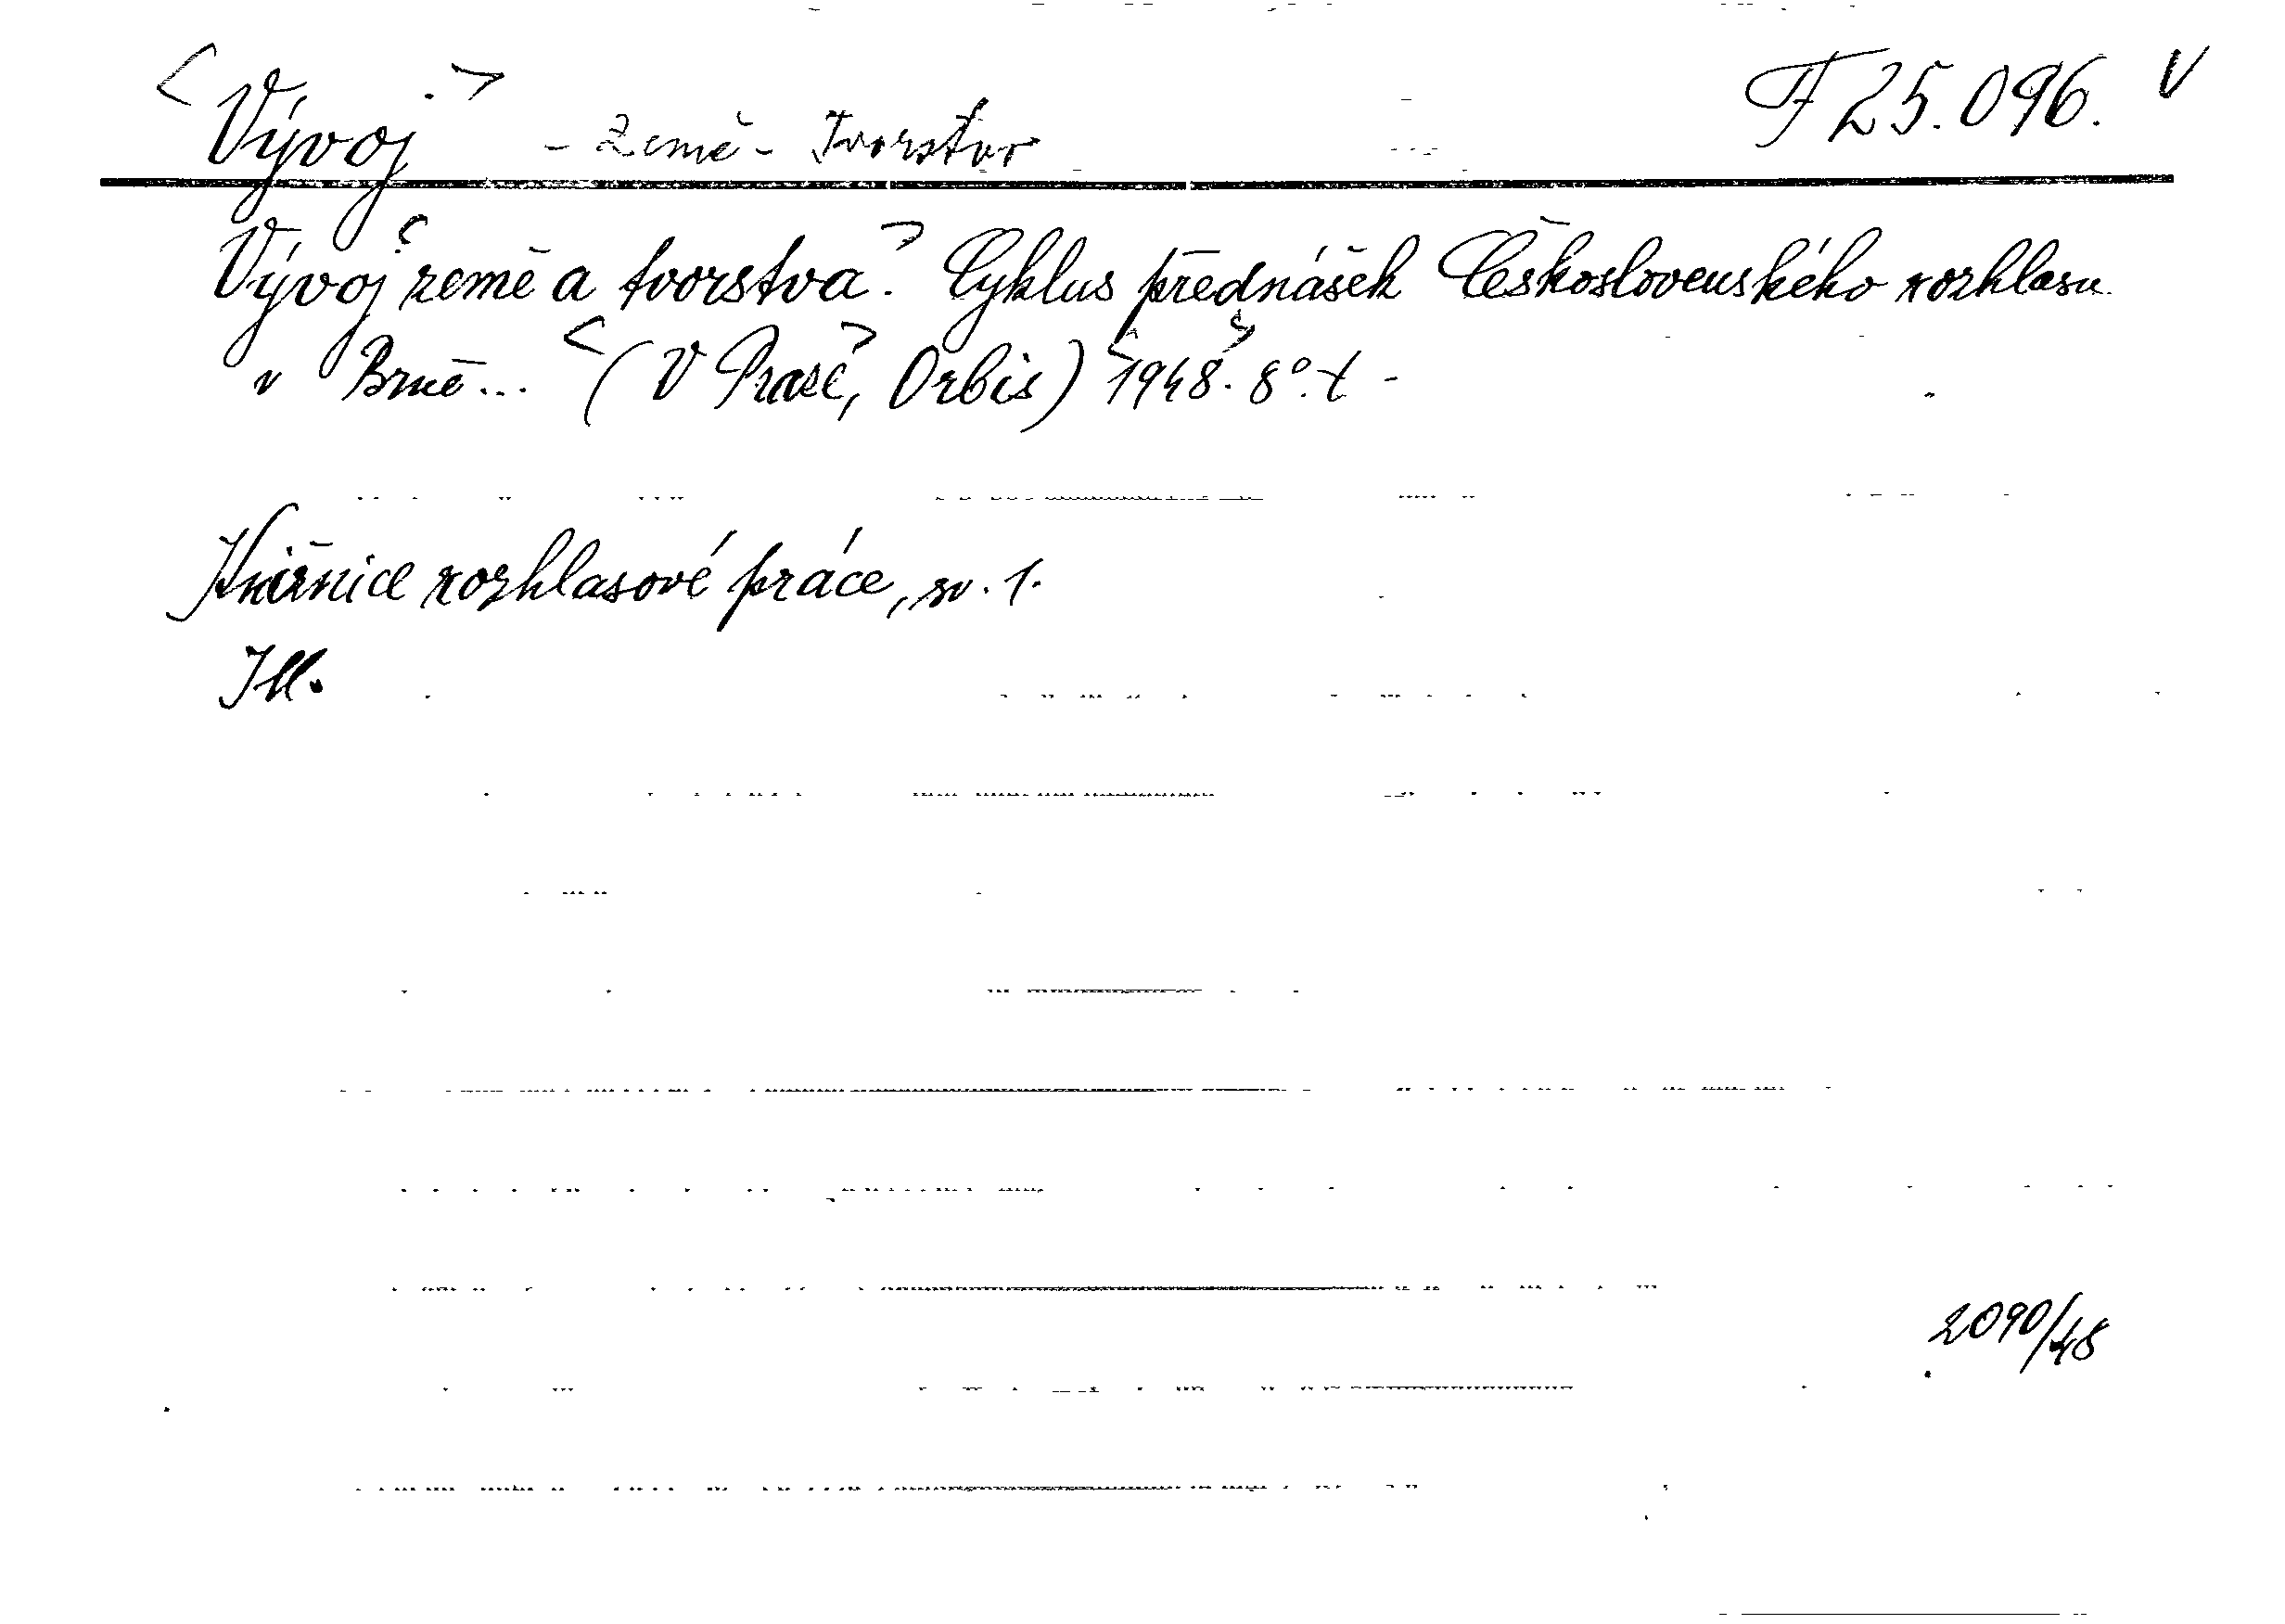 <Vývoj.> - Země - Tvorstvo F 25.096. v
Vývoj <země a tvorstva>. Cyklus přednášek Československého rozhlasu
v Brně... <(V Praze>, Orbis) <1948>. 8°. t -
Knižnice rozhlasové práce, sv. 1.
Ill.
2090/48